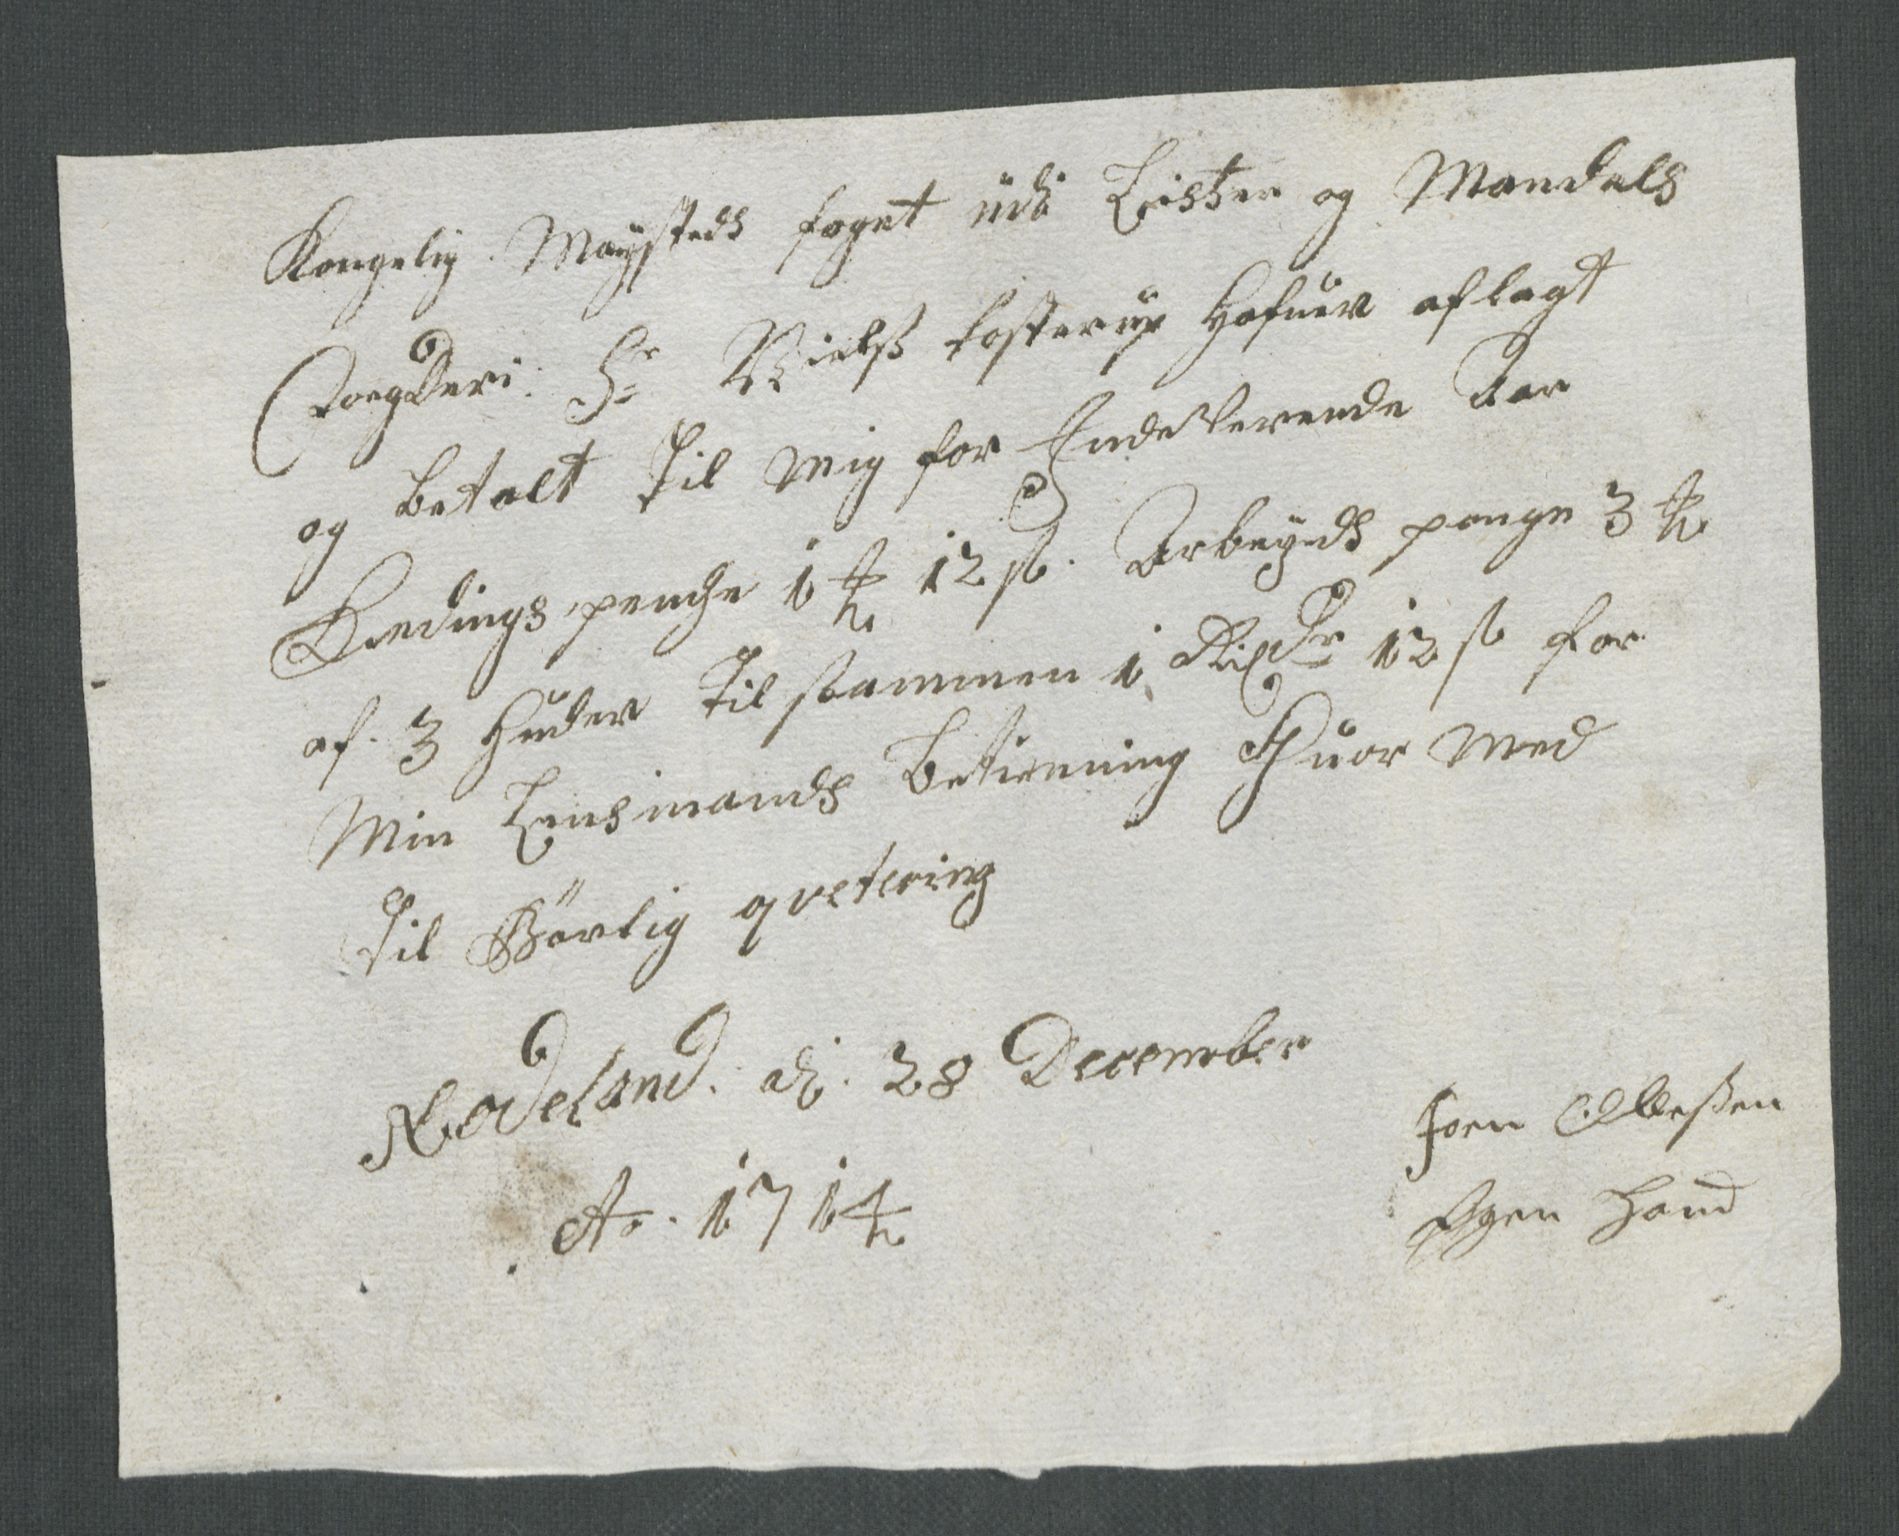 Kongelig Mayesteds foget udi Lister og Mandals
Foegderi. Sr Nielß Tosterup Hafuer aflagt
og betalt til mig for Indeverende Aar
Leedings penge 1 ort 12 ß. Arbeyds penge 3 ort
af 3 Huder til sammen 1 Rixdr 12 ß for
Min Lensmands betienning Huor med
til Börlig qvetering
Rodeland. dj. 28 December
Ao. 1714
Joen Olleßen
Egen Hand